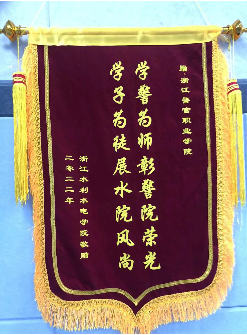 赠:浙江警官职业学院
学警为师彰警院荣光
学子为徒展水院风尚
浙江水利水电学院敬赠
二零二二年